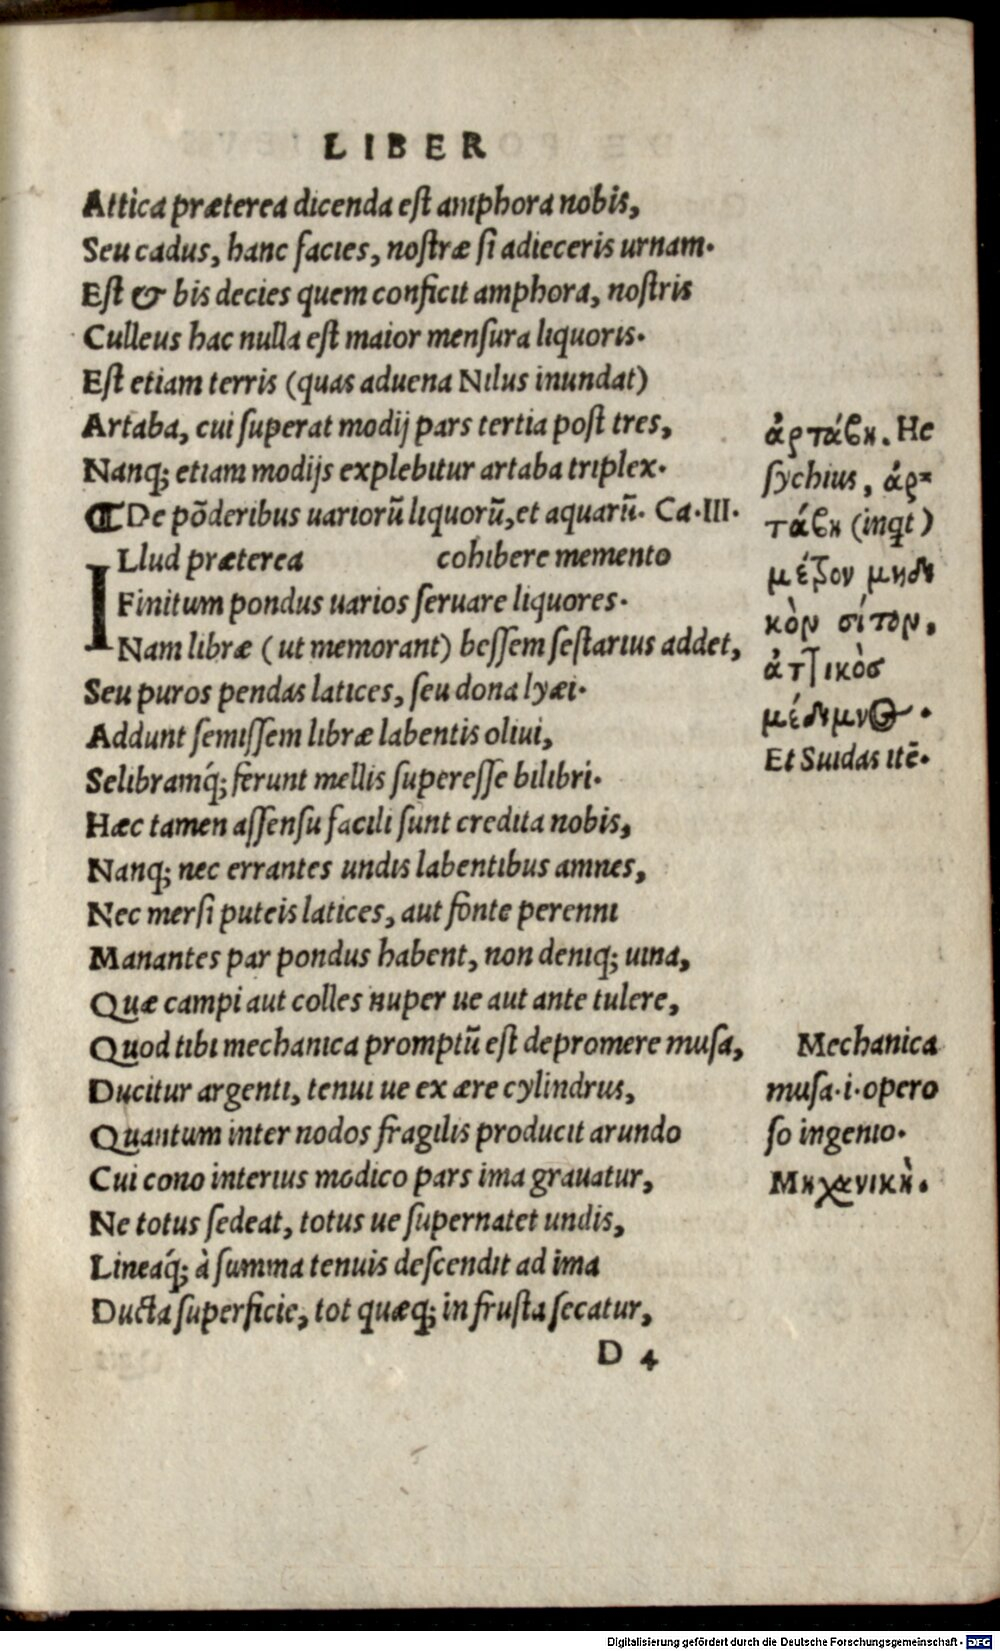 LIBER
Attica præterea dicenda est amphora nobis,
Seu cadus, hanc facies, nostræ si adieceris urnam.
Est & bis decies quem conficit amphora, nostris
Culleus hac nulla est maior mensura liquoris.
Est etiam terris (quas aduena Nilus inundat)
Artaba, cui superat modij pars tertia post tres,
Nanq; etiam modijs explebitur artaba triplex.
¶ De põderibus uariorũ liquorũ, et aquarũ. Ca.III.
ILlud præterea cohibere memento
Finitum pondus uarios seruare liquores.
Nam libræ (ut memorant) bessem sestarius addet,
Seu puros pendas latices, seu dona lyæi.
Addunt semissem libræ labentis oliui,
Selibramq́; ferunt mellis superesse bilibri.
Hæc tamen assensu facili sunt credita nobis,
Nanq; nec errantes undis labentibus amnes,
Nec mersi puteis latices, aut fonte perenni
Manantes par pondus habent, non deniq; uina,
Quæ campi aut colles nuper ue aut ante tulere,
Quod tibi mechanica promptũ est depromere musa,
Ducitur argenti, tenui ue ex ære cylindrus,
Quantum inter nodos fragilis producit arundo
Cui cono interius modico pars ima grauatur,
Ne totus sedeat, totus ue supernatet undis,
Lineaq́; à summa tenuis descendit ad ima
Ducta superficie, tot quæq; in frusta secatur,
D 4
ἀρτάβη. He
sychius, ἀρ=
τάβη (inqt)
μέζον μηδι
κὸν σίτον,
ἀττικὸσ
μέδιμνος.
Et Suidas itẽ.
Mechanica
musa.i.opero
so ingenio.
Μηχανικὴ.
Digitalisierung gefördert durch die Deutsche Forschungsgemeinschaft - DFG